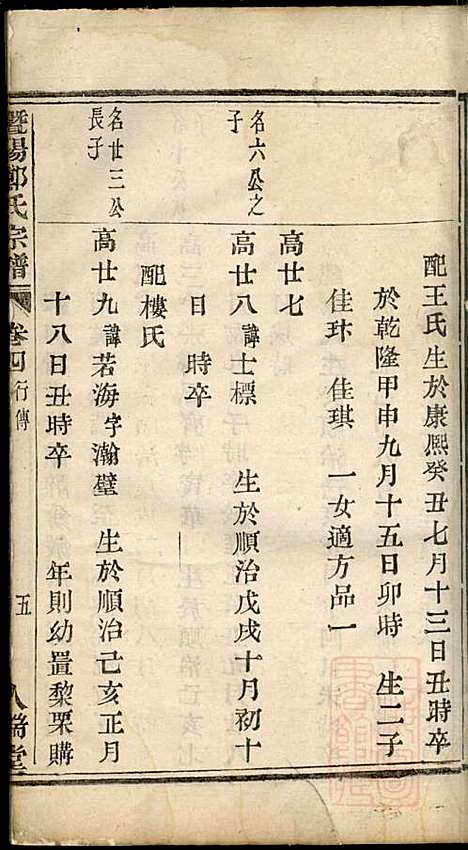 配王氏 生於康熙癸丑七月十三日丑時卒
於乾隆甲申九月十五日卯時 生二子
佳玝 佳琪 一女適方品一
高廿七
名六公之子
高廿八諱士標 生於順治戊戌十月初十
日 時卒
配樓氏
名廿三公長子
高廿九諱若海字瀚璧 生於順治己亥正月
十八日丑時卒 年則幼置黎栗購
暨陽 氏宗譜 卷四 行傳 五 堂